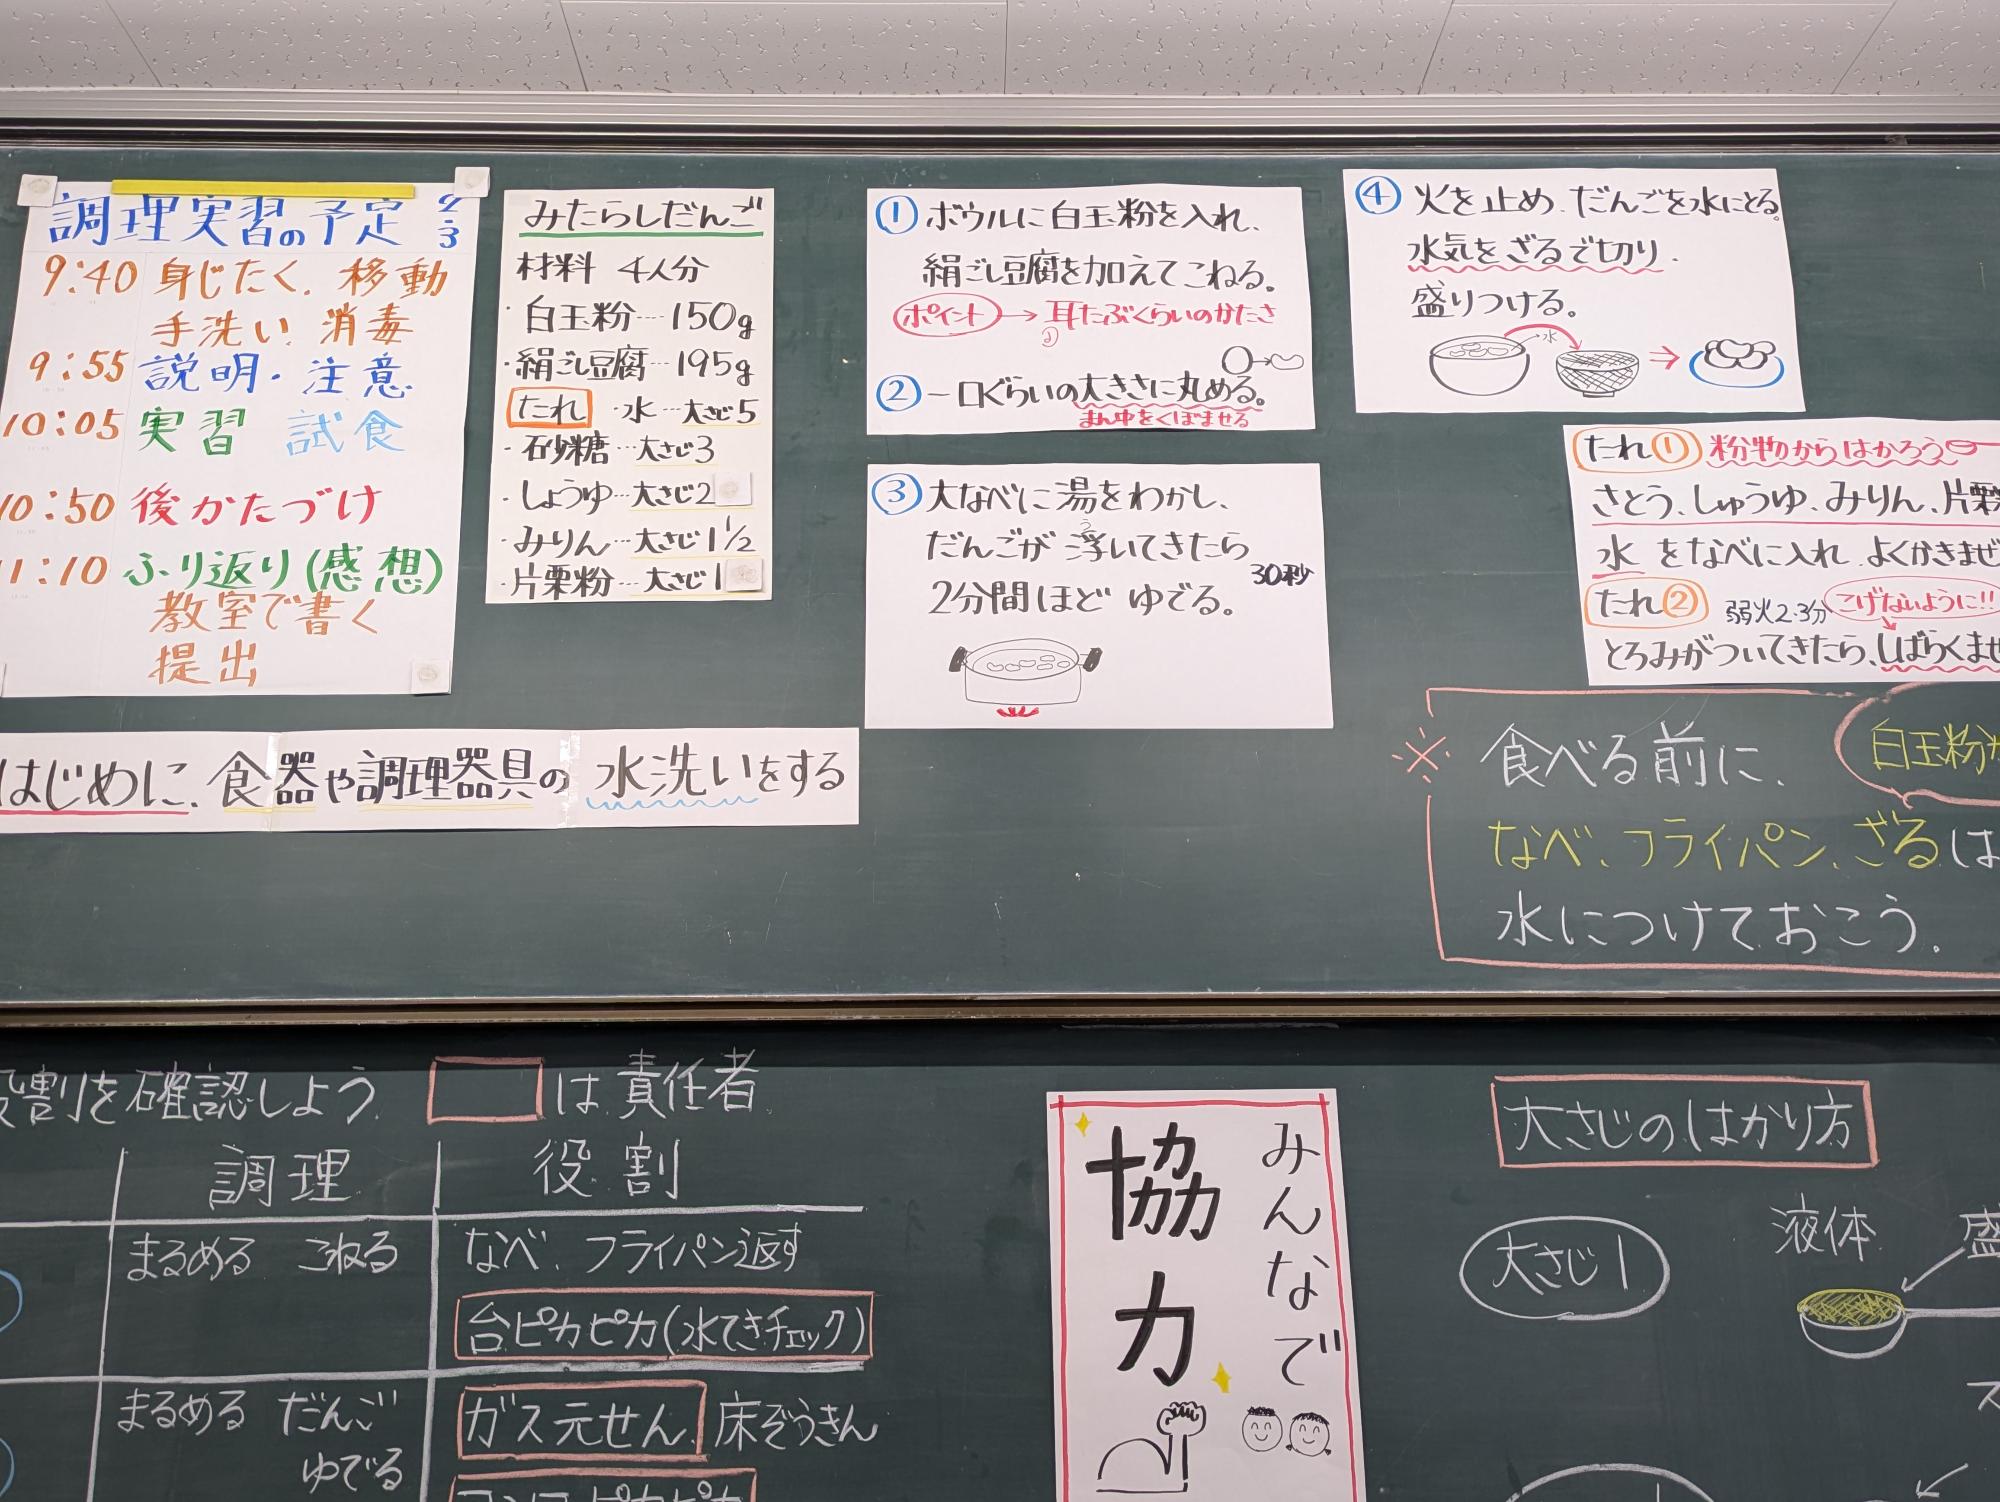 調理実習の予定 2・3
9:40 身じたく、移動
手洗い 消毒
9:55 説明・注意
10:05 実習 試食
10:50 後かたづけ
11:10 ふり返り(感想)
教室で書く
提出
みたらしだんご
材料 4人分
・白玉粉…150g
・絹ごし豆腐…195g
たれ ・水…大さじ5
・砂糖…大さじ3
・しょうゆ…大さじ2
・みりん…大さじ1 1/2
・片栗粉…大さじ1
① ボウルに白玉粉を入れ、
絹ごし豆腐を加えてこねる。
ポイント→耳たぶくらいのかたさ
② 一口ぐらいの大きさに丸める。
まん中をくぼませる
③ 大なべに湯をわかし、
だんごが浮いてきたら
う
2分間ほど ゆでる。
30秒
④ 火を止め、だんごを水にとる。
水気をざるで切り、
盛りつける。
水
たれ① 粉物からはかろう
さとう、しょうゆ、みりん、片栗
水 をなべに入れ、よくかきませ
たれ② 弱火2・3分 こげないように!!
とろみがついてきたら、しばらくませ
はじめに、食器や調理器具の水洗いをする
※ 食べる前に、 白玉粉
なべ、フライパン、ざるは
水につけておこう。
役割を確認しよう は責任者
調理 役割
まるめる こねる なべ、フライパン返す
台ピカピカ(水てきチェック)
まるめる だんご ガス元せん、床ぞうきん
ゆでる
みんなで
協力
大さじのはかり方
大さじ1
液体
盛